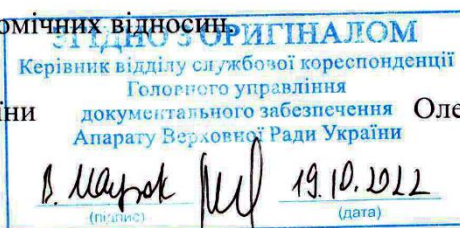 омічних відносин
ЗГІДНО З ОРИГІНАЛОМ
Керівник відділу службової кореспонденції
Головного управління
їни документального забезпечення Оле
Апарату Верховної Ради України
19.10.2022
(підпис) (дата)